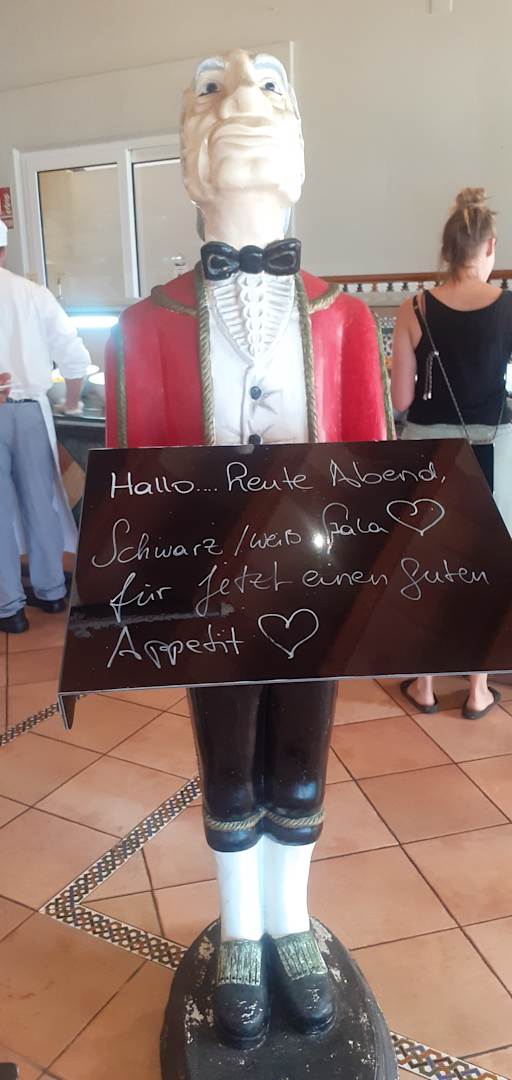 Hallo.... Heute Abend,
Schwarz / weiß Gala ♡
für Jetzt einen guten
Appetit ♡